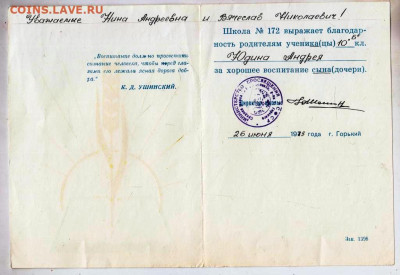 COINS.LAV.RU
Уважаемые Нина Андреевна и Вячеслав Николаевич!
"Воспитание должно просветить
сознание человека, чтобы перед гла-
зами его лежала ясная дорога доб-
ра."
К. Д. УШИНСКИЙ.
Школа № 172 выражает благодар-
ность родителям ученика(цы) 10"Б" кл.
Юдина Андрея
за хорошее воспитание сына(дочери).
Директор школы
26 июня 19 года г. Горький
Зак. 1598